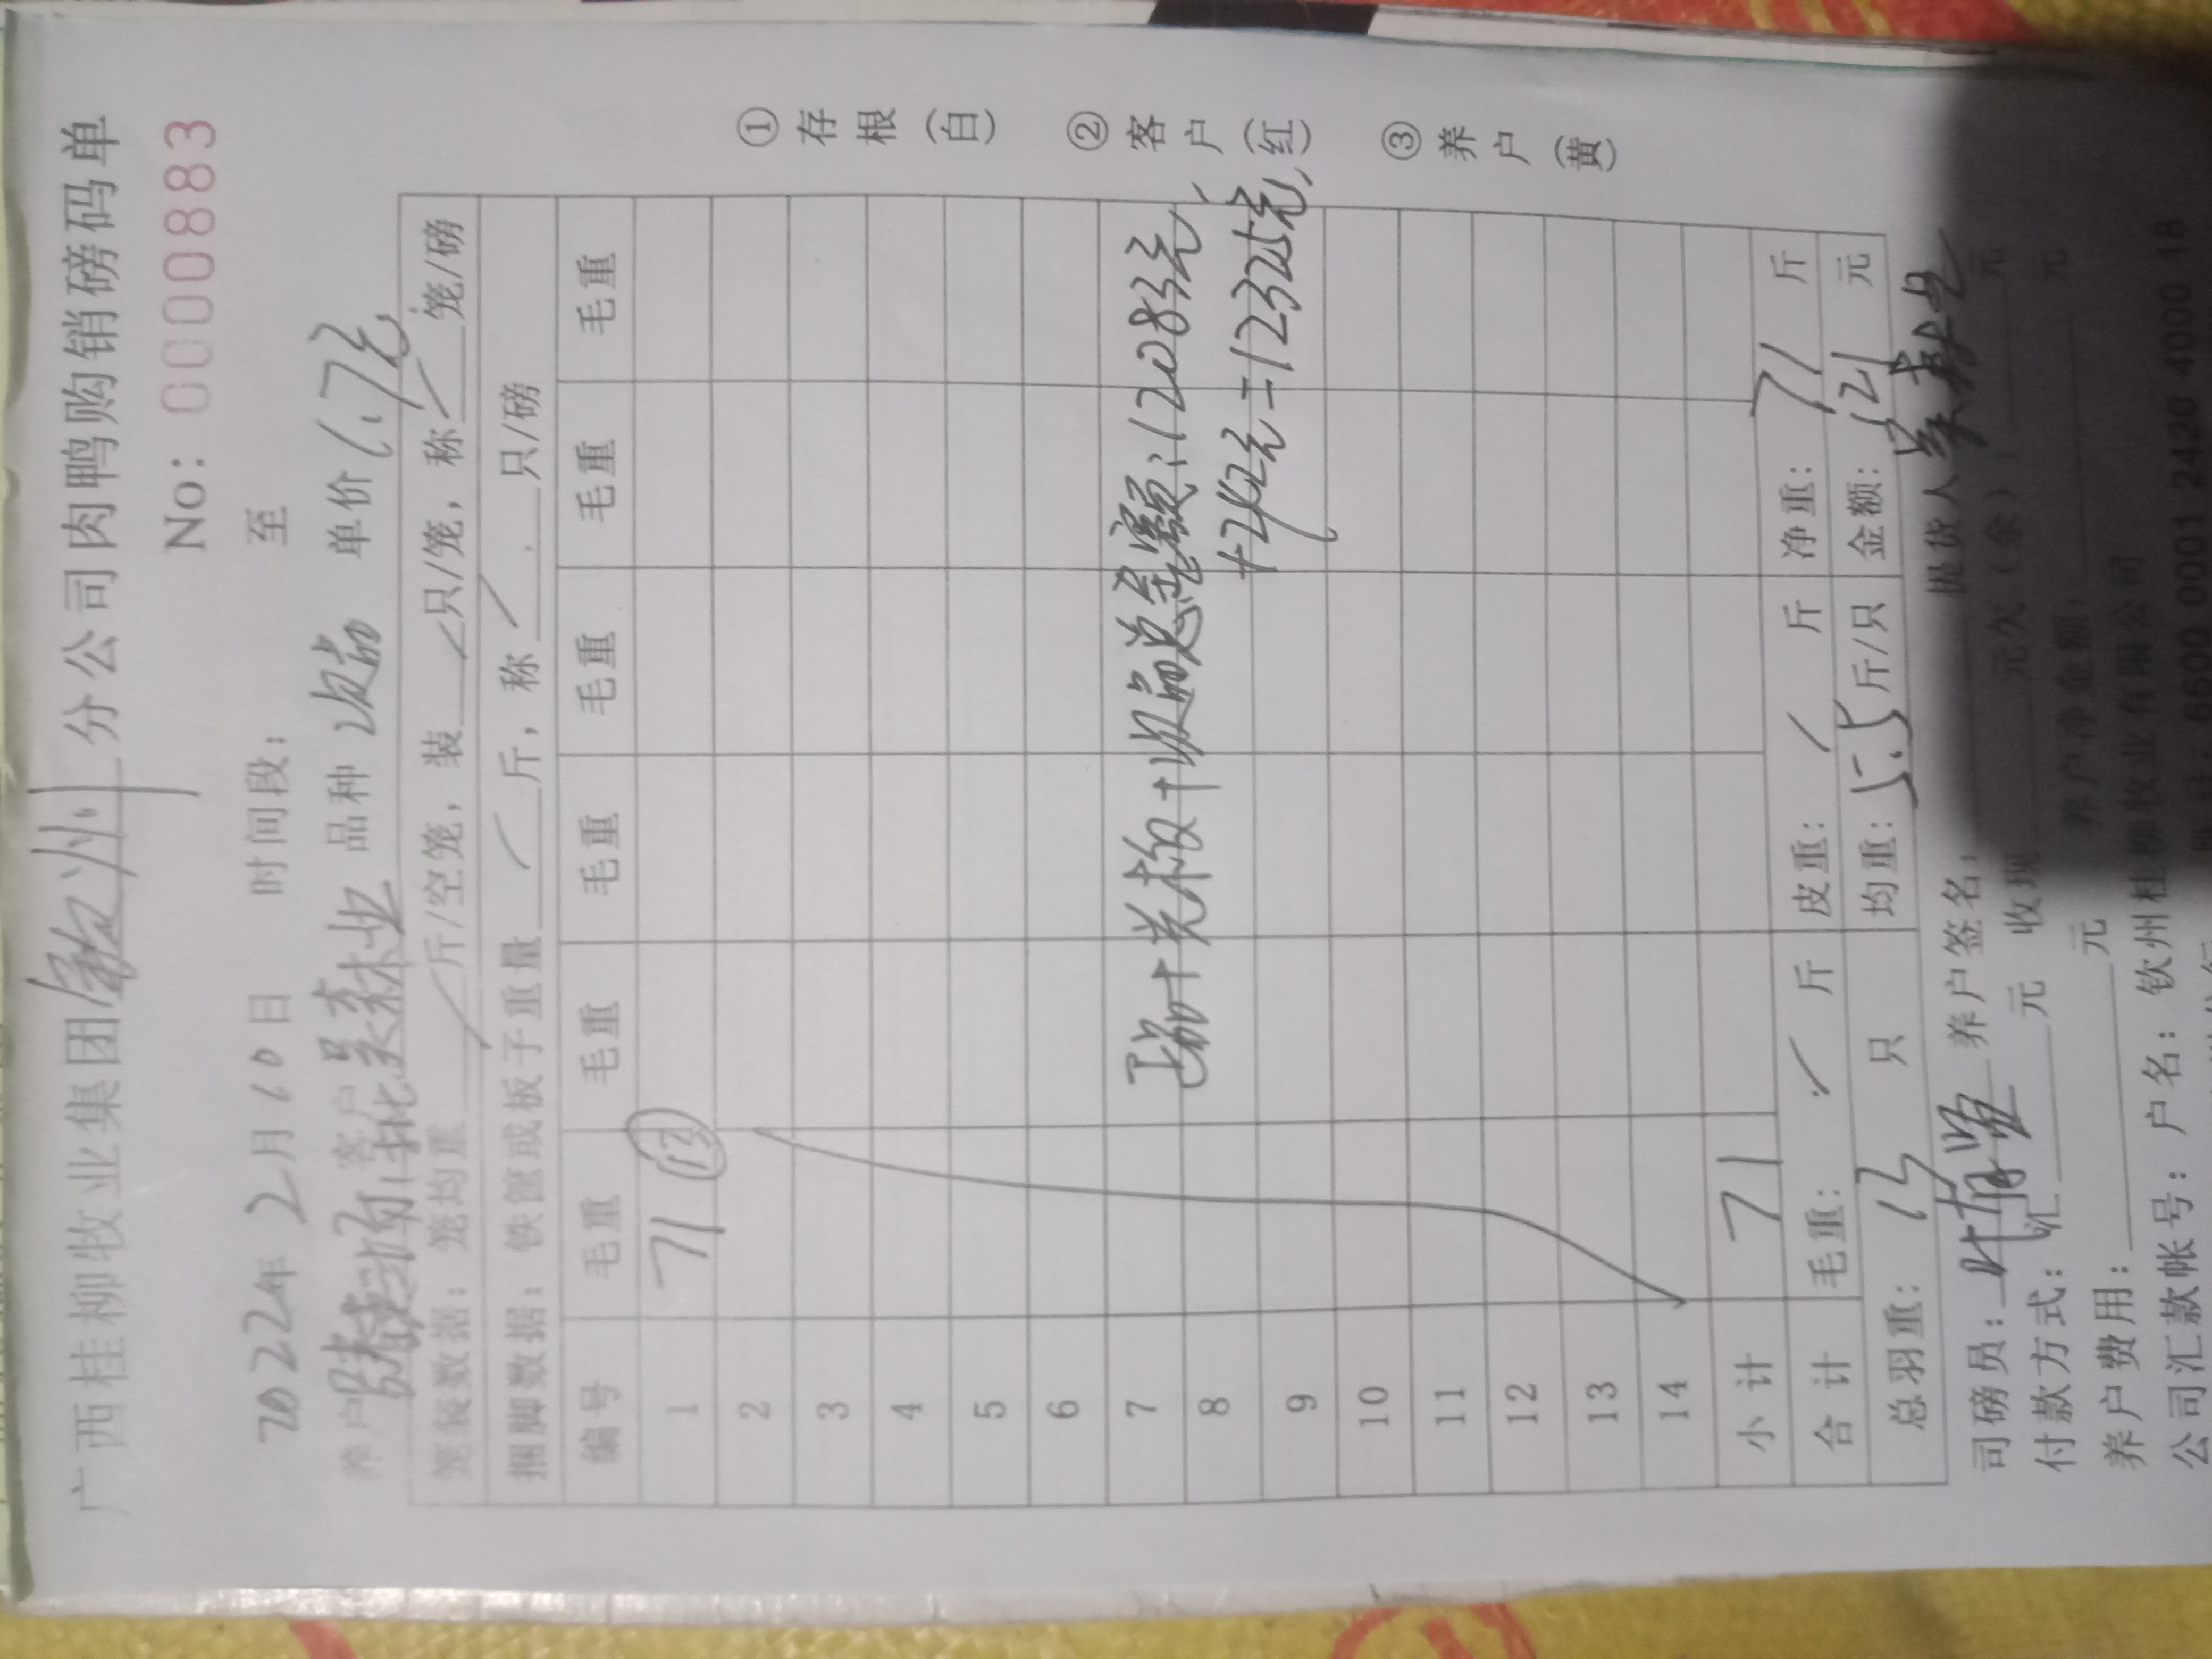 广西桂柳牧业集团钦州分公司肉鸭购销磅码单
No: 0000883
2022年2月10日 时间段: 至
养户 客户 吴森业 品种 次品 单价 1.7元
笼装数据: 笼均重 斤/空笼, 装 只/笼, 称 笼/磅
捆脚数据: 铁管或板子重量 斤, 称 只/磅
编号 毛重 毛重 毛重 毛重 毛重 毛重
1 71 ⑬
2
3
4
5
6
7 正品+光板+次品总金额:12083元
8 +242元=12325元
9
10
11
12
13
14
小计 71
合计 毛重: 斤 皮重: 斤 净重: 71 斤
总羽重: 13 只 均重: 5.5 斤/只 金额: 121 元
司磅员: 养户签名: 提货人
付款方式: 汇 元 收现 元欠(余): 元
养户费用: 元 养户净金额: 元
公司汇款帐号: 户名: 钦州桂柳牧业有限公司
账号: 6600 0001 2420 4000 18
①存根(白) ②客户(红) ③养户(黄)